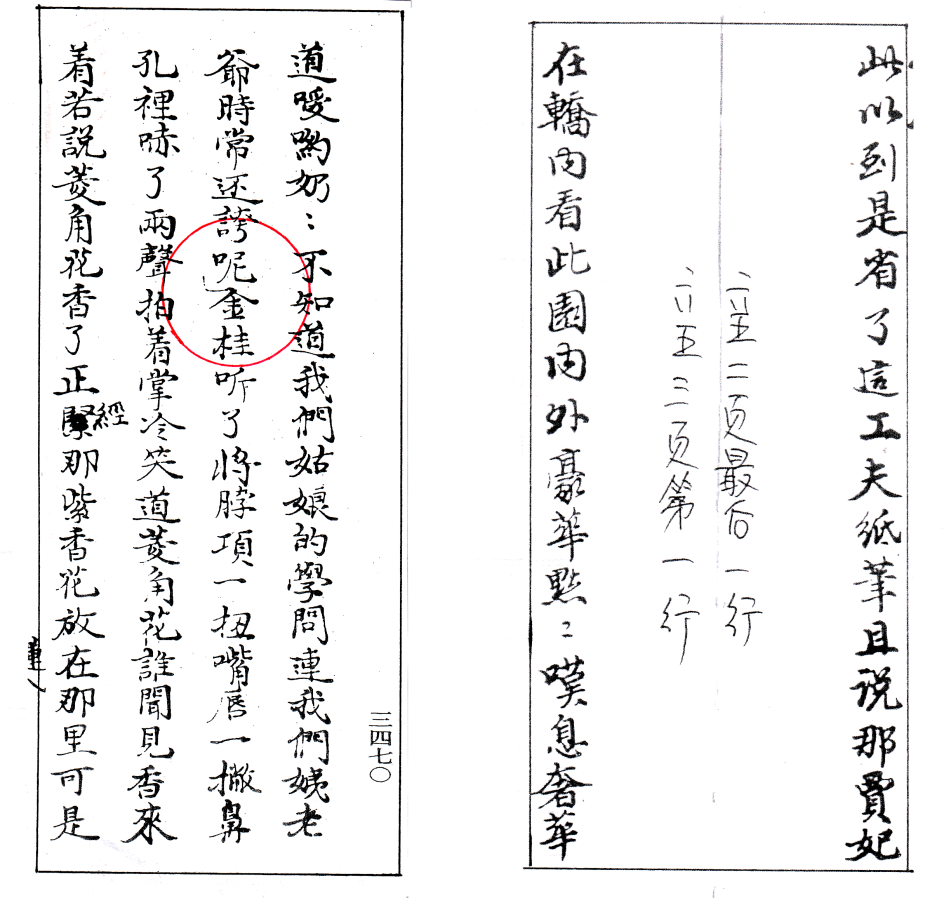 道嗳喲奶:不知道我們姑娘的學問連我們姨老
爺時常还誇呢金桂听了将脖項一扭嘴唇一撇鼻
孔裡哧了兩聲拍着掌冷笑道菱角花誰聞見香來
着若說菱角花香了正緊那些香花放在那里可是
經
三四七〇
此以到是省了這工夫紙筆且说那賈妃
六五二页最后一行
六五三页第一行
在轎内看此園内外豪華默:嘆息奢華